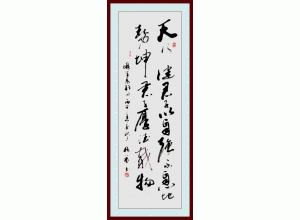 天行健君子以自强不息地
势坤君子以厚德载物